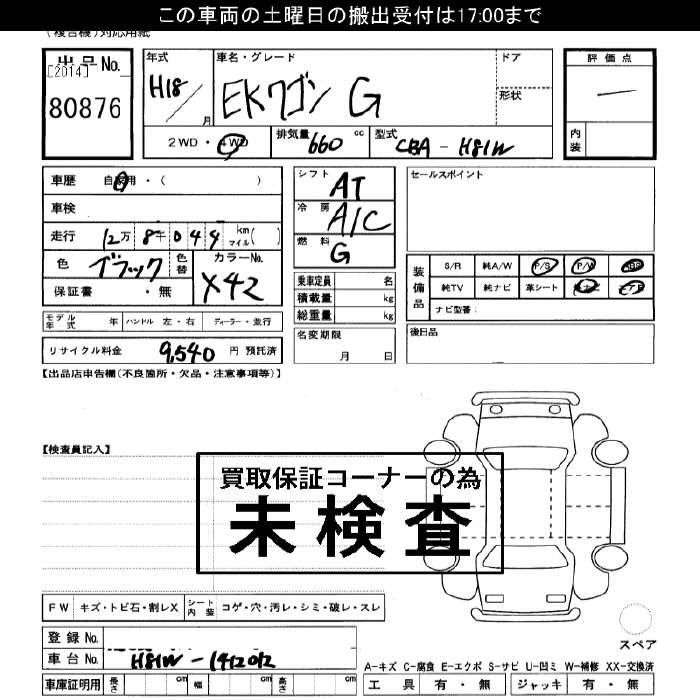 この車両の土曜日の搬出受付は17:00まで
(複合機)対応用紙
出品No. [2014] 80876
年式 H18 / 月
車名・グレード EKワゴン G
ドア
形状
評価点 —
内装
2WD・4WD 排気量 660 cc 型式 CBA - H81W
車歴 自家用・( )
車検
走行 12万 8千 0 4 4 km マイル( )
色 ブラック 色替 カラーNo. X42
保証書 ・無
シフト AT
冷房 A/C
燃料 G
乗車定員 名
積載量 kg
総重量 kg
セールスポイント
装備品 S/R 純A/W P/S P/W ABS
純TV 純ナビ 革シート
ナビ型番:
モデル年式 年 ハンドル 左・右 ディーラー・並行
リサイクル料金 9,540 円 預託済
名変期限 月 日
後日品
【出品店申告欄(不良箇所・欠品・注意事項等)】
【検査員記入】
買取保証コーナーの為
未検査
FW キズ・トビ石・割レX シート内装 コゲ・穴・汚レ・シミ・破レ・スレ
登録No.
車台No. H81W-1412012
車庫証明用 長さ cm 幅 cm 高さ cm
スペア
A-キズ C-腐食 E-エクボ S-サビ U-凹ミ W-補修 XX-交換済
工具 有・無 ジャッキ 有・無